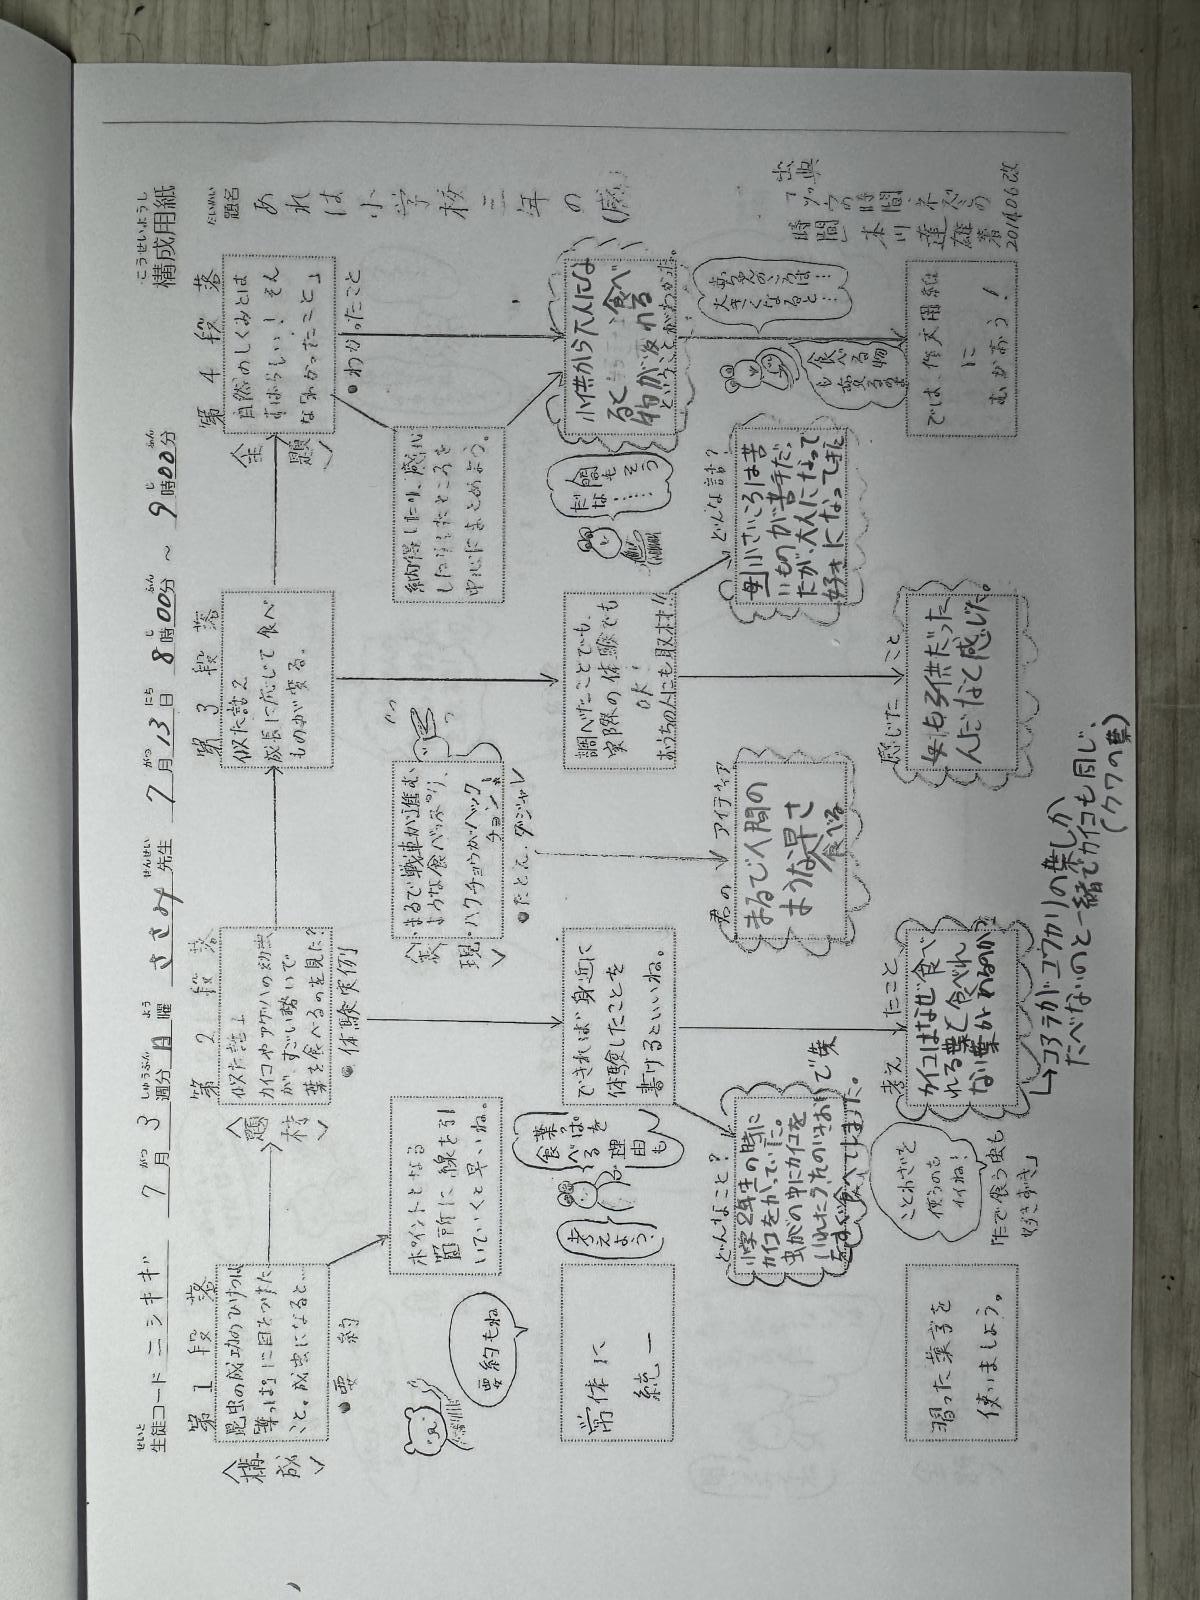 構成用紙
こうせいようし
生徒コード ニシキギ 7月3週分 月曜 ささみ先生 7月13日 8時00分 〜 9時00分
題名
だいめい
あれは小学校三年の
<構成>
第1段落
昆虫の成功のひけつは
「葉っぱ」に目をつけた
こと。成虫になると…
●要約
要約もね
ポイントとなる
箇所に線を引
いていくと早いね。
常体に
統一
習った葉言を
使いましょう。
第2段落
<題材>
似た話1
カイコやアゲハの幼虫
が、すごい勢いで
葉を食べるのを見た?
●体験実例
できれば身近に
体験したことを
書けるといいね。
葉っぱを
食べる
理由も
考えよう。
どんなこと?
小学2年生の時に
カイコをかっていた。
虫かごの中にカイコを
いれたら、
すぐ食べてしまった。
考えたこと
カイコはなぜ食べ
れる葉と食べれ
ない葉がわかるのか?
→コアラがユウカリの葉しか
たべないのと一緒でカイコも同じ、
(クワの葉)
ことわざを
使うのも
イイね!
「たで食う虫も
好きずき」
<表現>
・まるで戦車が進む
ような食べっぷり、
・ハクチョウがハック
チョン!
●たとえ、ダジャレ
君のアイディア
まるで人間の
ような早さ
食べる
第3段落
似た話2
成長に応じて食べ
ものが変る。
調べたことでも、
実際の体験でも
OK!
おうちの人にも取材!!
どんな話?
母小さいころは苦
いものが苦手だっ
たが、大人になって
好きになってきた
感じたこと
母も子供だった
んだなと感じた。
第4段落
<主題>
自然のしくみとは
すばらしい! そん
な「わかったこと」
●わかったこと
納得したり、感心
したりしたところを
中心にまとめよう。
人間もそう
だな……
小供から大人にな
ると食べ
物が変わる
ということがわかった。
幼虫のころは…
大きくなると…
食べる物
も変るの
では、作文用紙
に
むかおう!
出典
「ゾウの時間 ネズミの
時間」 本川達雄 著
2014.06改